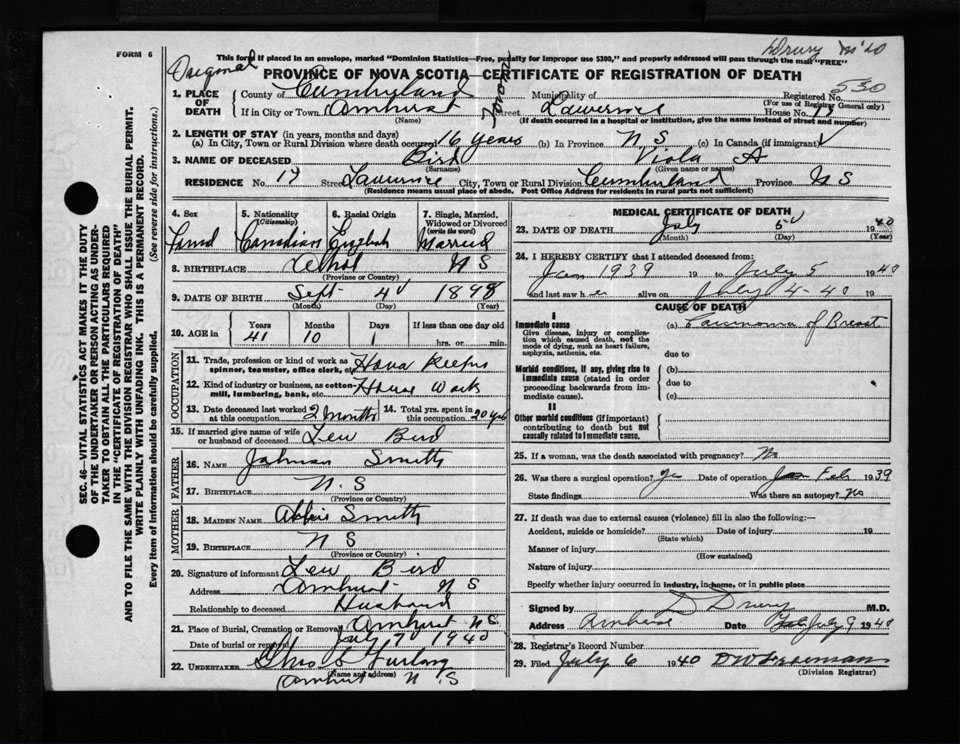 FORM 6
This form if placed in an envelope, marked "Dominion Statistics—Free, penalty for improper use $300," and properly addressed will pass through the mail "FREE"
Drury
Original PROVINCE OF NOVA SCOTIA—CERTIFICATE OF REGISTRATION OF DEATH
530
1. PLACE OF DEATH County of Cumberland Municipality of Registered No.
(For use of Registrar General only)
If in City or Town Amherst Street Lawrence House No. 17
(Name) (If death occurred in a hospital or institution, give the name instead of street and number)
2. LENGTH OF STAY (in years, months and days)
(a) In City, Town or Rural Division where death occurred 16 years (b) In Province N.S. (c) In Canada (if immigrant)
3. NAME OF DECEASED Bird Viola A
(Surname) (Given name or names)
RESIDENCE No. 17 Street Lawrence City, Town or Rural Division Cumberland Province N S
(Residence means usual place of abode. Post Office Address for residents in rural parts not sufficient)
4. Sex 5. Nationality (Citizenship) 6. Racial Origin 7. Single, Married, Widowed or Divorced (write the word)
Canadian English Married
8. BIRTHPLACE N S
(Province or Country)
9. DATE OF BIRTH Sept 4 1898
(Month) (Day) (Year)
10. AGE in Years Months Days If less than one day old
41 10 1 hrs. or min.
OCCUPATION
11. Trade, profession or kind of work as spinner, teamster, office clerk, etc.
12. Kind of industry or business, as cotton-mill, lumbering, bank, etc. House Work
13. Date deceased last worked at this occupation 2 months 14. Total yrs. spent in this occupation 20 yrs
15. If married give name of wife or husband of deceased Lew Bird
FATHER
16. NAME Smith
17. BIRTHPLACE N.S
(Province or Country)
MOTHER
18. MAIDEN NAME Abbie Smith
19. BIRTHPLACE N S
(Province or Country)
20. Signature of informant Lew Bird
Address Amherst N S
Relationship to deceased Husband
21. Place of Burial, Cremation or Removal Amherst N S
Date of burial or removal July 7 1940
22. UNDERTAKER Furlong
(Name and address)
Amherst N.S
MEDICAL CERTIFICATE OF DEATH
23. DATE OF DEATH July 5 1940
(Month) (Day) (Year)
24. I HEREBY CERTIFY that I attended deceased from:
Jan 1939 19 to July 5 1940
and last saw h e alive on July 4-40 19
CAUSE OF DEATH
I
Immediate cause (a) Carcinoma of Breast
Give disease, injury or complication which caused death, not the mode of dying, such as heart failure, asphyxia, asthenia, etc.
due to
Morbid conditions, if any, giving rise to immediate cause (stated in order proceeding backwards from immediate cause).
(b)
due to
(c)
II
Other morbid conditions (if important) contributing to death but not causally related to immediate cause.
25. If a woman, was the death associated with pregnancy? No
26. Was there a surgical operation? Date of operation Feb 1939
State findings Was there an autopsy? No
27. If death was due to external causes (violence) fill in also the following:—
Accident, suicide or homicide? Date of injury 19
(State which)
Manner of injury
(How sustained)
Nature of injury
Specify whether injury occurred in industry, in home, or in public place
Signed by D Drury M.D.
Address Amherst Date July 9 1940
28. Registrar's Record Number
29. Filed July 6 1940
(Division Registrar)
SEC. 46—VITAL STATISTICS ACT MAKES IT THE DUTY
OF THE UNDERTAKER OR PERSON ACTING AS UNDER-
TAKER TO OBTAIN ALL THE PARTICULARS REQUIRED
IN THE "CERTIFICATE OF REGISTRATION OF DEATH"
AND TO FILE THE SAME WITH THE DIVISION REGISTRAR WHO SHALL ISSUE THE BURIAL PERMIT.
WRITE PLAINLY WITH UNFADING INK. THIS IS A PERMANENT RECORD.
Every item of information should be carefully supplied. (See reverse side for instructions.)